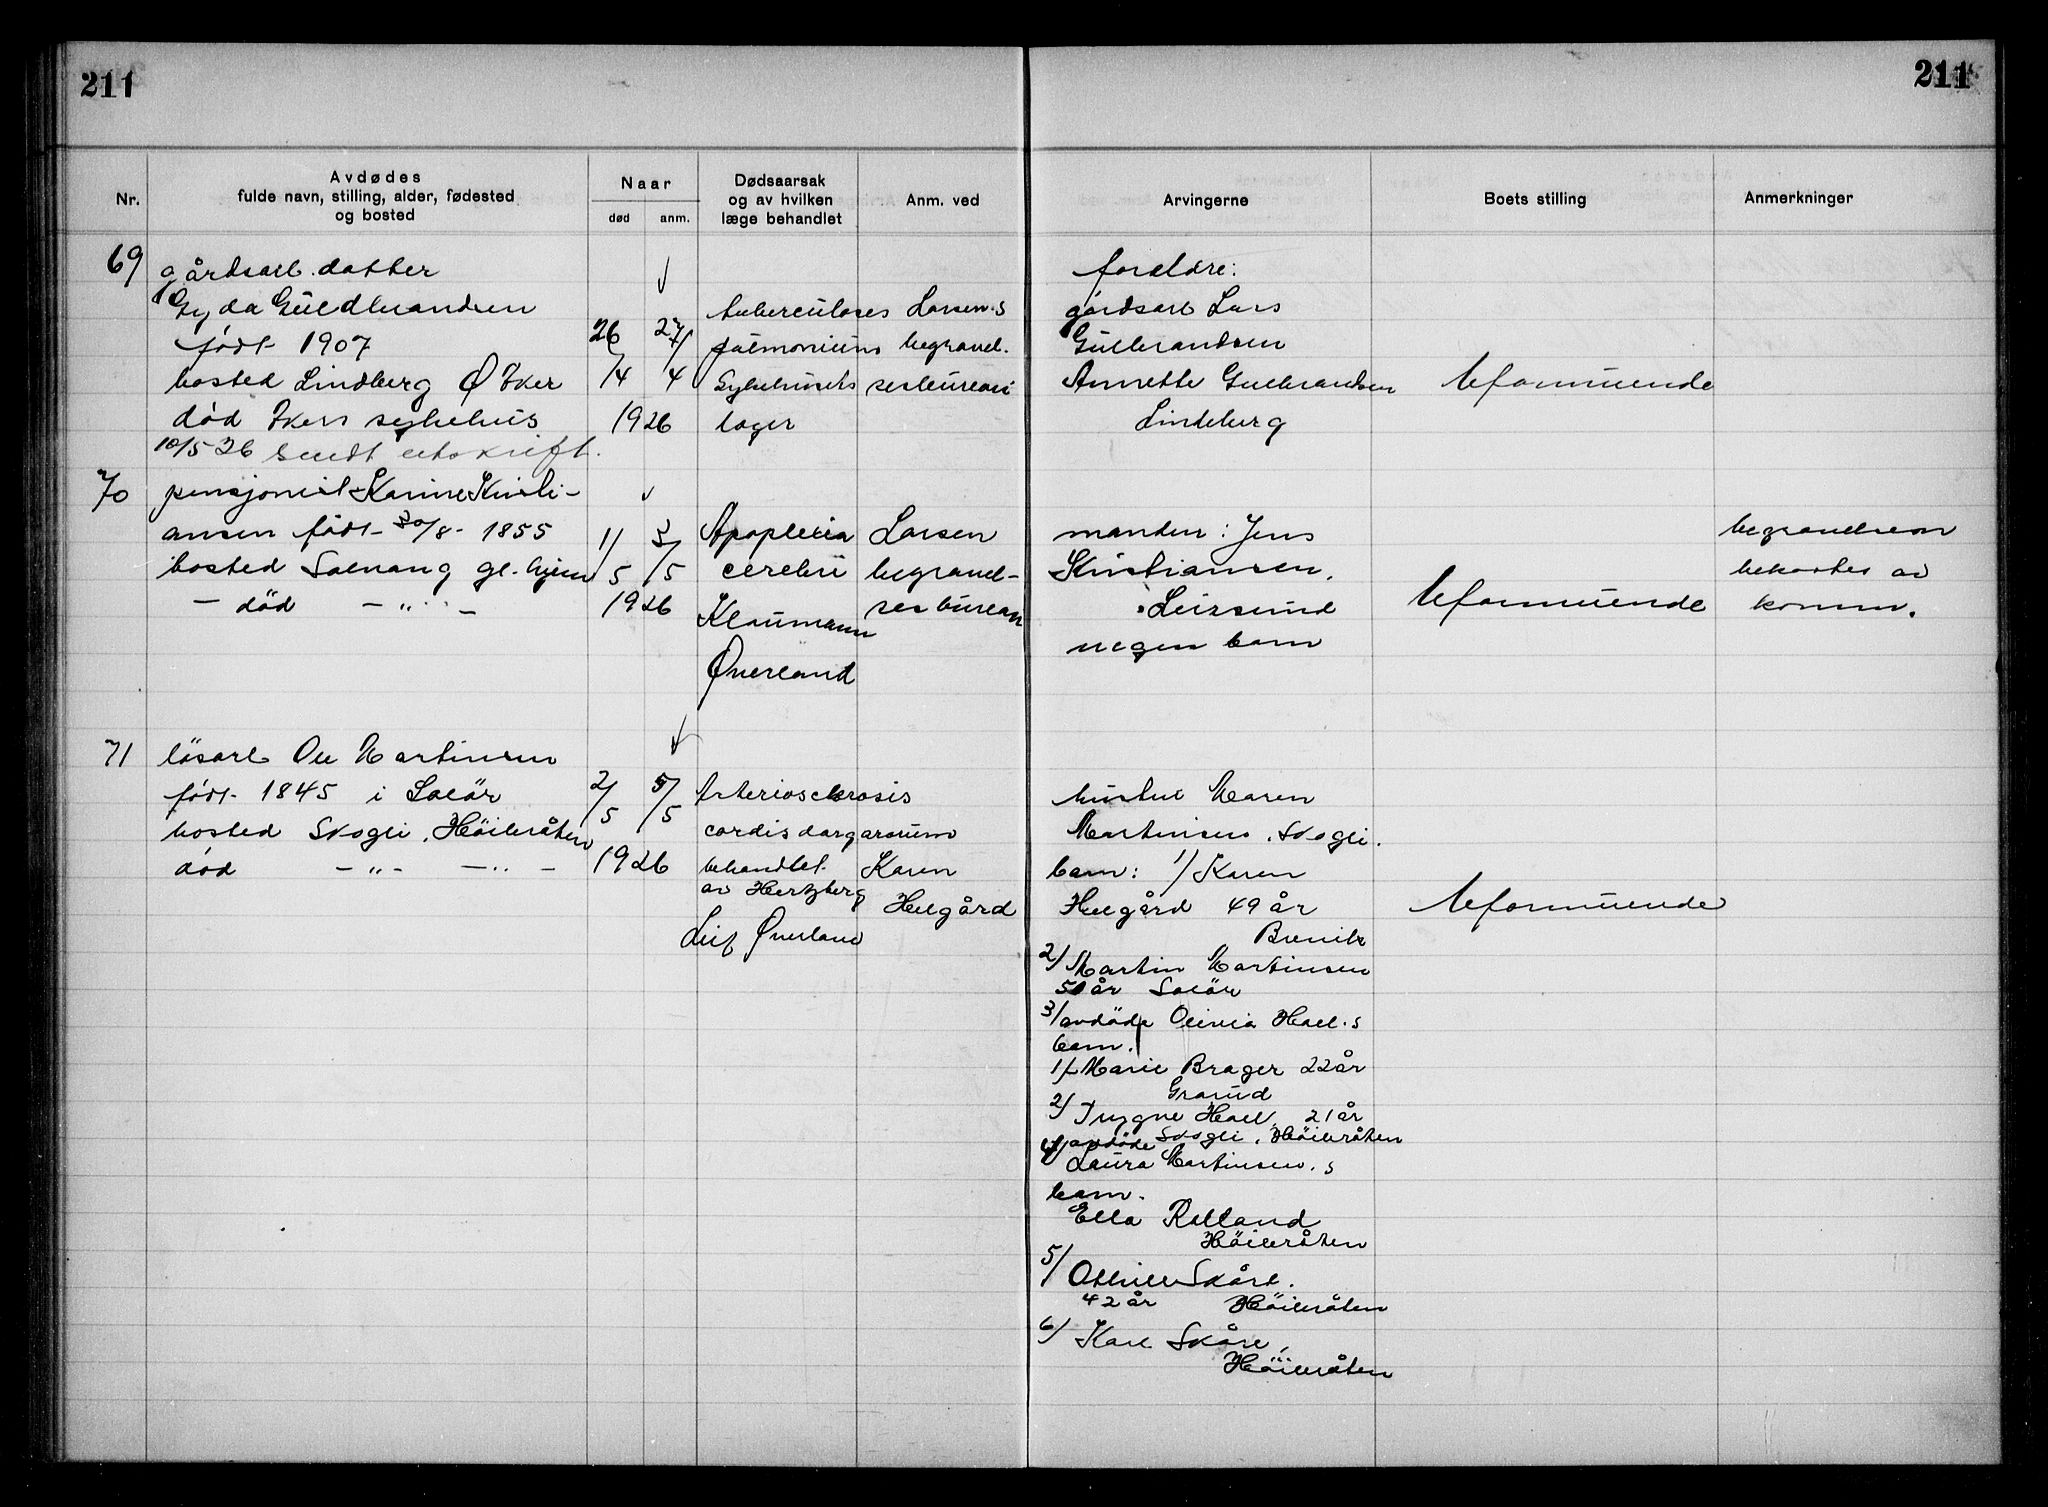 211
211
Nr.
Avdødes
fulde navn, stilling, alder, fødested
og bosted
Naar
død
anm.
Dødsaarsak
og av hvilken
læge behandlet
Anm. ved
Arvingerne
Boets stilling
Anmerkninger
69
gårdsarb. datter
Gyda Guldbrandsen
født 1907
bosted Lindberg Ø Eker
død Ekers sykehus
10/5 36 sendt utskrift.
26/4
27/4
1926
tuberculoses
pulmonium
Sykehusets
læger
Larsen.s
begravel-
sesbureau
foreldre:
gårdsarb Lars
Gulbrandsen
Annette Gulbrandsen
Lindeberg
Uformuende
70
pensjonist Karine Kristi-
ansen født 30/8 - 1855
bosted Solvang gl. hjem
- død - " -
1/5
3/5
1926
Apoplexia
cerebri
Klaumann
Øverland
Larsen
begravel-
ses bureau
manden: Jens
Kristiansen.
Leirsund
ingen barn
Uformuende
begravelsen
bekostes av
komm.
71
løsarb Ole Martinsen
født 1845 i Solör
bosted Skogli, Höibråten
død - " - - " -
2/5
5/5
1926
Arteriosclerosis
cordis
behandlet
av Hertzberg
Leif Øverland
Karen
Helgård
hustru Maren
Martinsen, Skogli.
barn: 1/ Karen
Helgård 49 år
2/ Martin Martinsen
50 år Solör
3/ avdöde Olivia Hoel.s
barn.
1/ Marie Brager 22 år
Grorud
2/ Trygve Hoel, 21 år
Skogli, Höibråten
4/ avdöde
Laura Martinsen.s
barn.
Ella Rolland
Höibråten
5/ Othilie Skåre.
42 år Höibråten
6/ Karl Skåre,
Höibråten
Uformuende